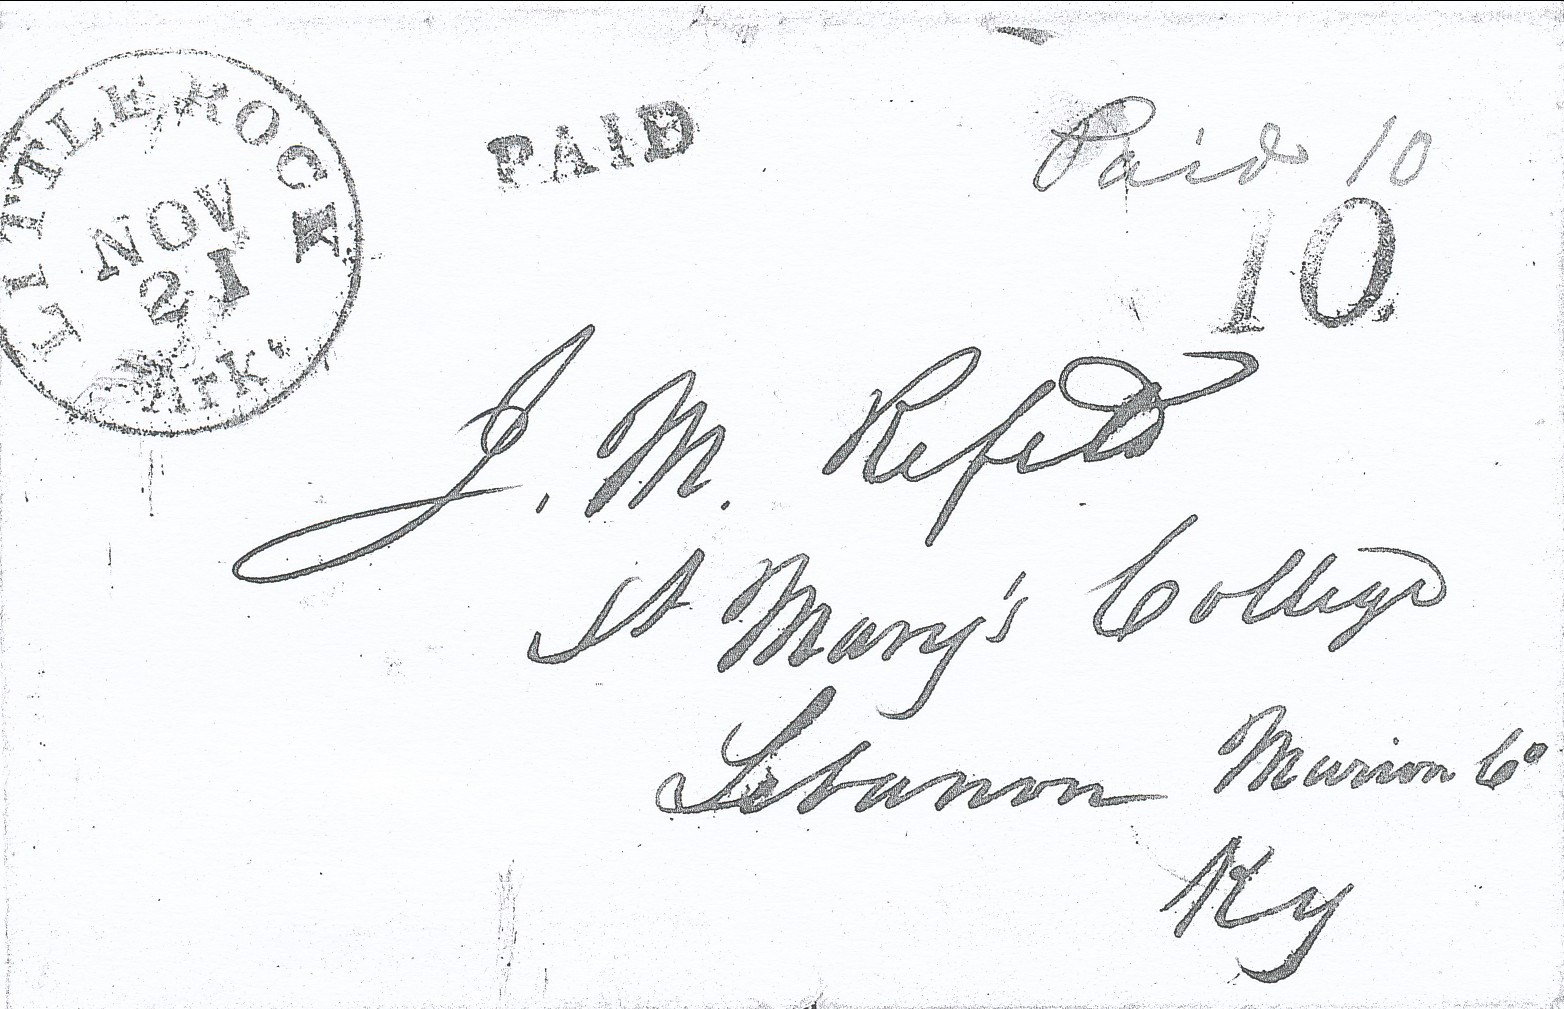 LITTLE ROCK
NOV
21
Ark.
PAID
Paid 10
10
J. M. Refeld
St Mary's College
Lebanon Marion Co
Ky